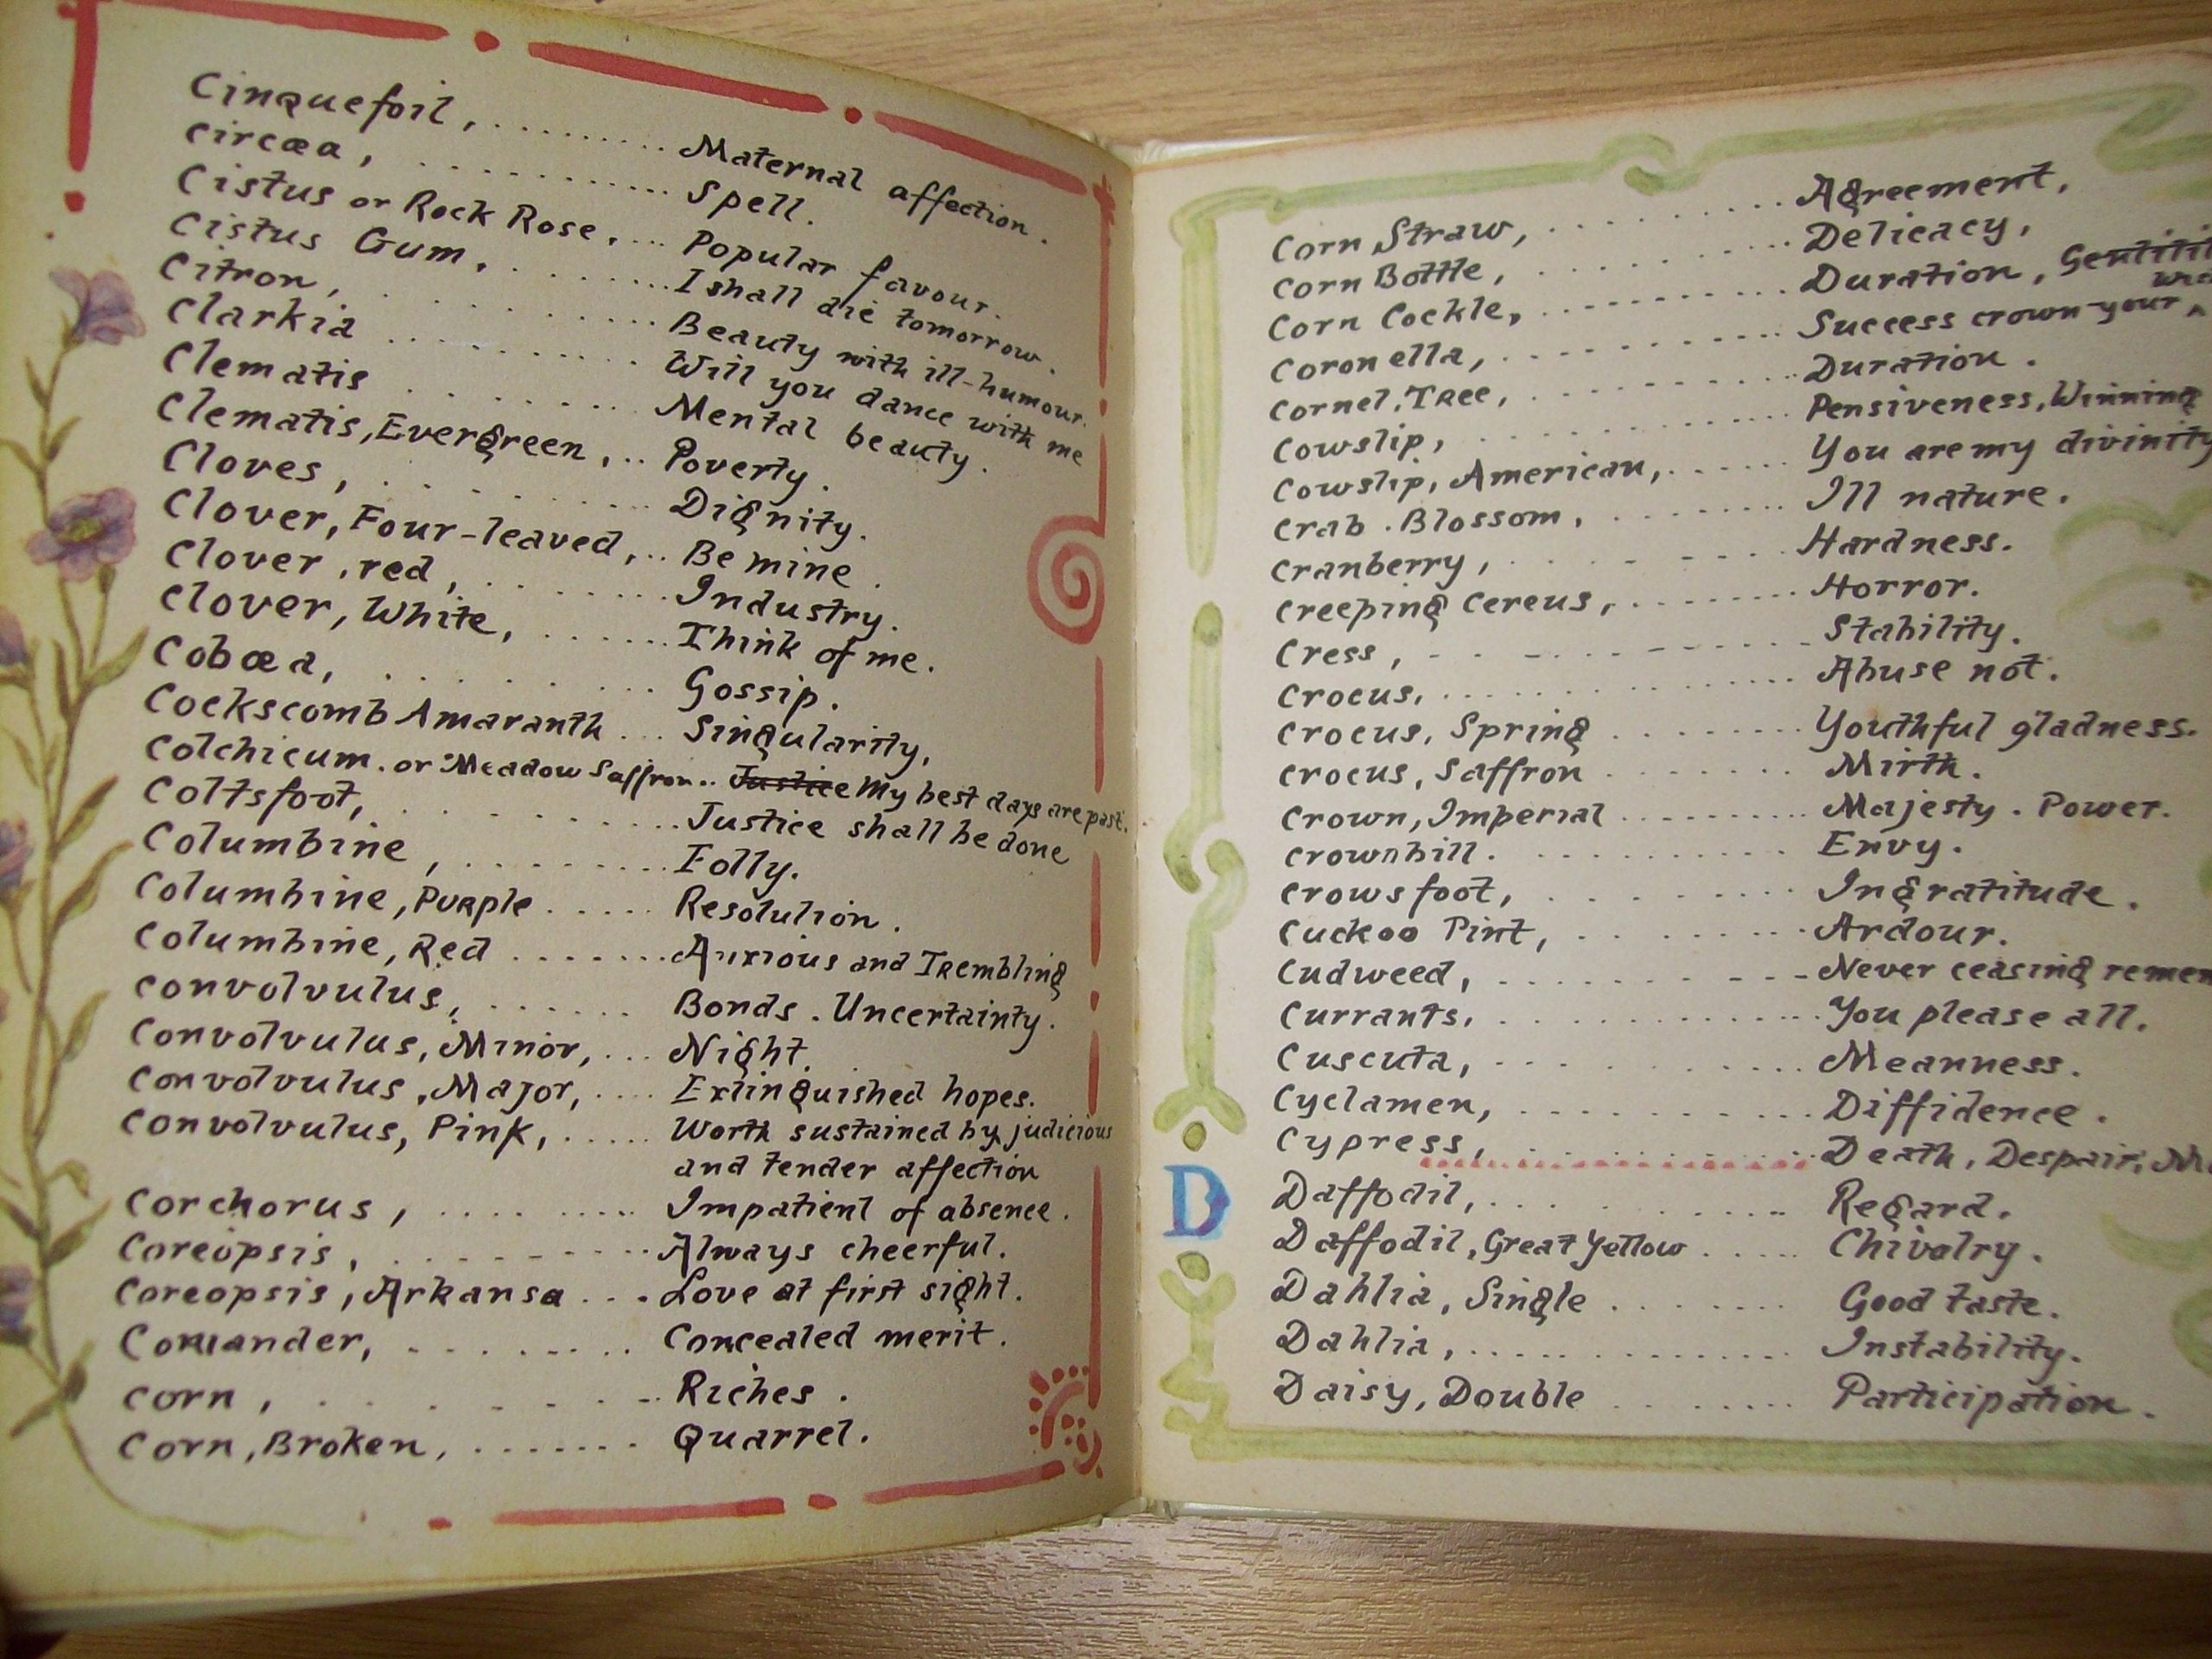 Cinquefoil, ......... Maternal affection.
Circæa, ........... Spell.
Cistus or Rock Rose, ... Popular favour.
Cistus Gum, ........ I shall die tomorrow.
Citron, ........... Beauty with ill-humour.
Clarkia .......... Will you dance with me
Clematis ......... Mental beauty.
Clematis, Evergreen, .. Poverty.
Cloves, ......... Dignity.
Clover, Four-leaved, .. Be mine.
Clover, red, ........ Industry.
Clover, White, ...... Think of me.
Cobœa, ......... Gossip.
Cockscomb Amaranth ... Singularity,
Colchicum. or Meadow Saffron.. Justice My best days are past.
Coltsfoot, .......... Justice shall be done
Columbine, ........ Folly.
Columbine, Purple ..... Resolution.
Columbine, Red ....... Anxious and Trembling
Convolvulus, ....... Bonds. Uncertainty.
Convolvulus, Minor, ... Night.
Convolvulus, Major, .... Extinguished hopes.
Convolvulus, Pink, ..... Worth sustained by judicious
and tender affection
Corchorus, ......... Impatient of absence.
Coreopsis, ......... Always cheerful.
Coreopsis, Arkansa ... Love at first sight.
Coriander, ........ Concealed merit.
Corn, ........ Riches.
Corn, Broken, ....... Quarrel.
Corn Straw, ......... Agreement,
Corn Bottle, ......... Delicacy,
Corn Cockle, ......... Duration,
Coronella, .......... Success crown your
Cornel, Tree, ......... Duration.
Cowslip, ............ Pensiveness, Winning
Cowslip, American, ...... You are my divinity
Crab. Blossom, ........ Ill nature.
Cranberry, ......... Hardness.
Creeping Cereus, ........ Horror.
Cress, ........... Stability.
Crocus, ............ Abuse not.
Crocus, Spring ........ Youthful gladness.
Crocus, Saffron ....... Mirth.
Crown, Imperial .......... Majesty. Power.
Crownbill. ........... Envy.
Crowsfoot, ......... Ingratitude.
Cuckoo Pint, ......... Ardour.
Cudweed, .......... Never ceasing remem
Currants, ............. You please all.
Cuscuta, ............ Meanness.
Cyclamen, ............ Diffidence.
Cypress, ............ Death, Despair,
D
Daffodil, ........... Regard.
Daffodil, Great Yellow ..... Chivalry.
Dahlia, Single ....... Good taste.
Dahlia, .............. Instability.
Daisy, Double ....... Participation.